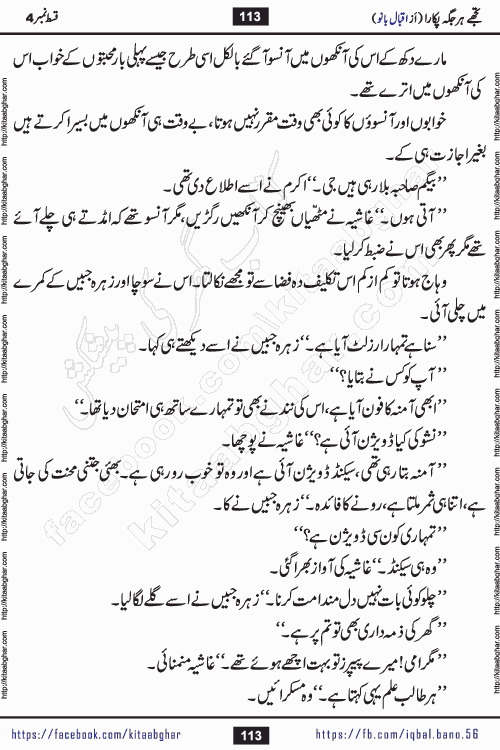 تجھے ہر جگہ پکارا (از اقبال بانو) 113 قسط نمبر 4
مارے دکھ کے اس کی آنکھوں میں آنسو آ گئے بالکل اسی طرح جیسے پہلی بار محبتوں کے خواب اس
کی آنکھوں میں اترے تھے۔
خوابوں اور آنسوؤں کا کوئی بھی وقت مقرر نہیں ہوتا، بے وقت ہی آنکھوں میں بسیرا کرتے ہیں
بغیر اجازت ہی کے۔
’’بیگم صاحبہ بلا رہی ہیں جی۔‘‘ اکرم نے اسے اطلاع دی تھی۔
’’آتی ہوں۔‘‘ غاشیہ نے مٹھیاں بھینچ کر آنکھیں رگڑیں، مگر آنسو تھے کہ امڈتے ہی چلے آئے
تھے مگر پھر بھی اس نے ضبط کر لیا۔
وہاج ہوتا تو کم از کم اس تکلیف دہ فضا سے تو مجھے نکالتا۔ اس نے سوچا اور زہرہ جبیں کے کمرے
میں چلی آئی۔
’’سنا ہے تمہارا رزلٹ آیا ہے۔‘‘ زہرہ جبیں نے اسے دیکھتے ہی کہا۔
’’آپ کو کس نے بتایا؟‘‘
’’ابھی آمنہ کا فون آیا ہے، اس کی نند نے بھی تو تمہارے ساتھ ہی امتحان دیا تھا۔‘‘
’’نشو کی کیا ڈویژن آئی ہے؟‘‘ غاشیہ نے پوچھا۔
’’آمنہ بتا رہی تھی، سیکنڈ ڈویژن آئی ہے اور وہ تو خوب رو رہی ہے۔ بھئی جتنی محنت کی جاتی
ہے، اتنا ہی ثمر ملتا ہے، رونے کا فائدہ۔‘‘ زہرہ جبیں نے کہا۔
’’تمہاری کون سی ڈویژن ہے؟‘‘
’’وہ ہی سیکنڈ۔‘‘ غاشیہ کی آواز بھرا گئی۔
’’چلو کوئی بات نہیں دل مندا مت کرنا۔‘‘ زہرہ جبیں نے اسے گلے لگا لیا۔
’’گھر کی ذمہ داری بھی تو تم پر ہے۔‘‘
’’مگر امی! میرے پیپرز تو بہت اچھے ہوئے تھے۔‘‘ غاشیہ منمنائی۔
’’ہر طالب علم یہی کہتا ہے۔‘‘ وہ مسکرائیں۔
کتاب گھر کی پیشکش
facebook.com/kitaabghar
kitaabghar.com
http://kitaabghar.com
https://facebook.com/kitaabghar 113 https://fb.com/iqbal.bano.56